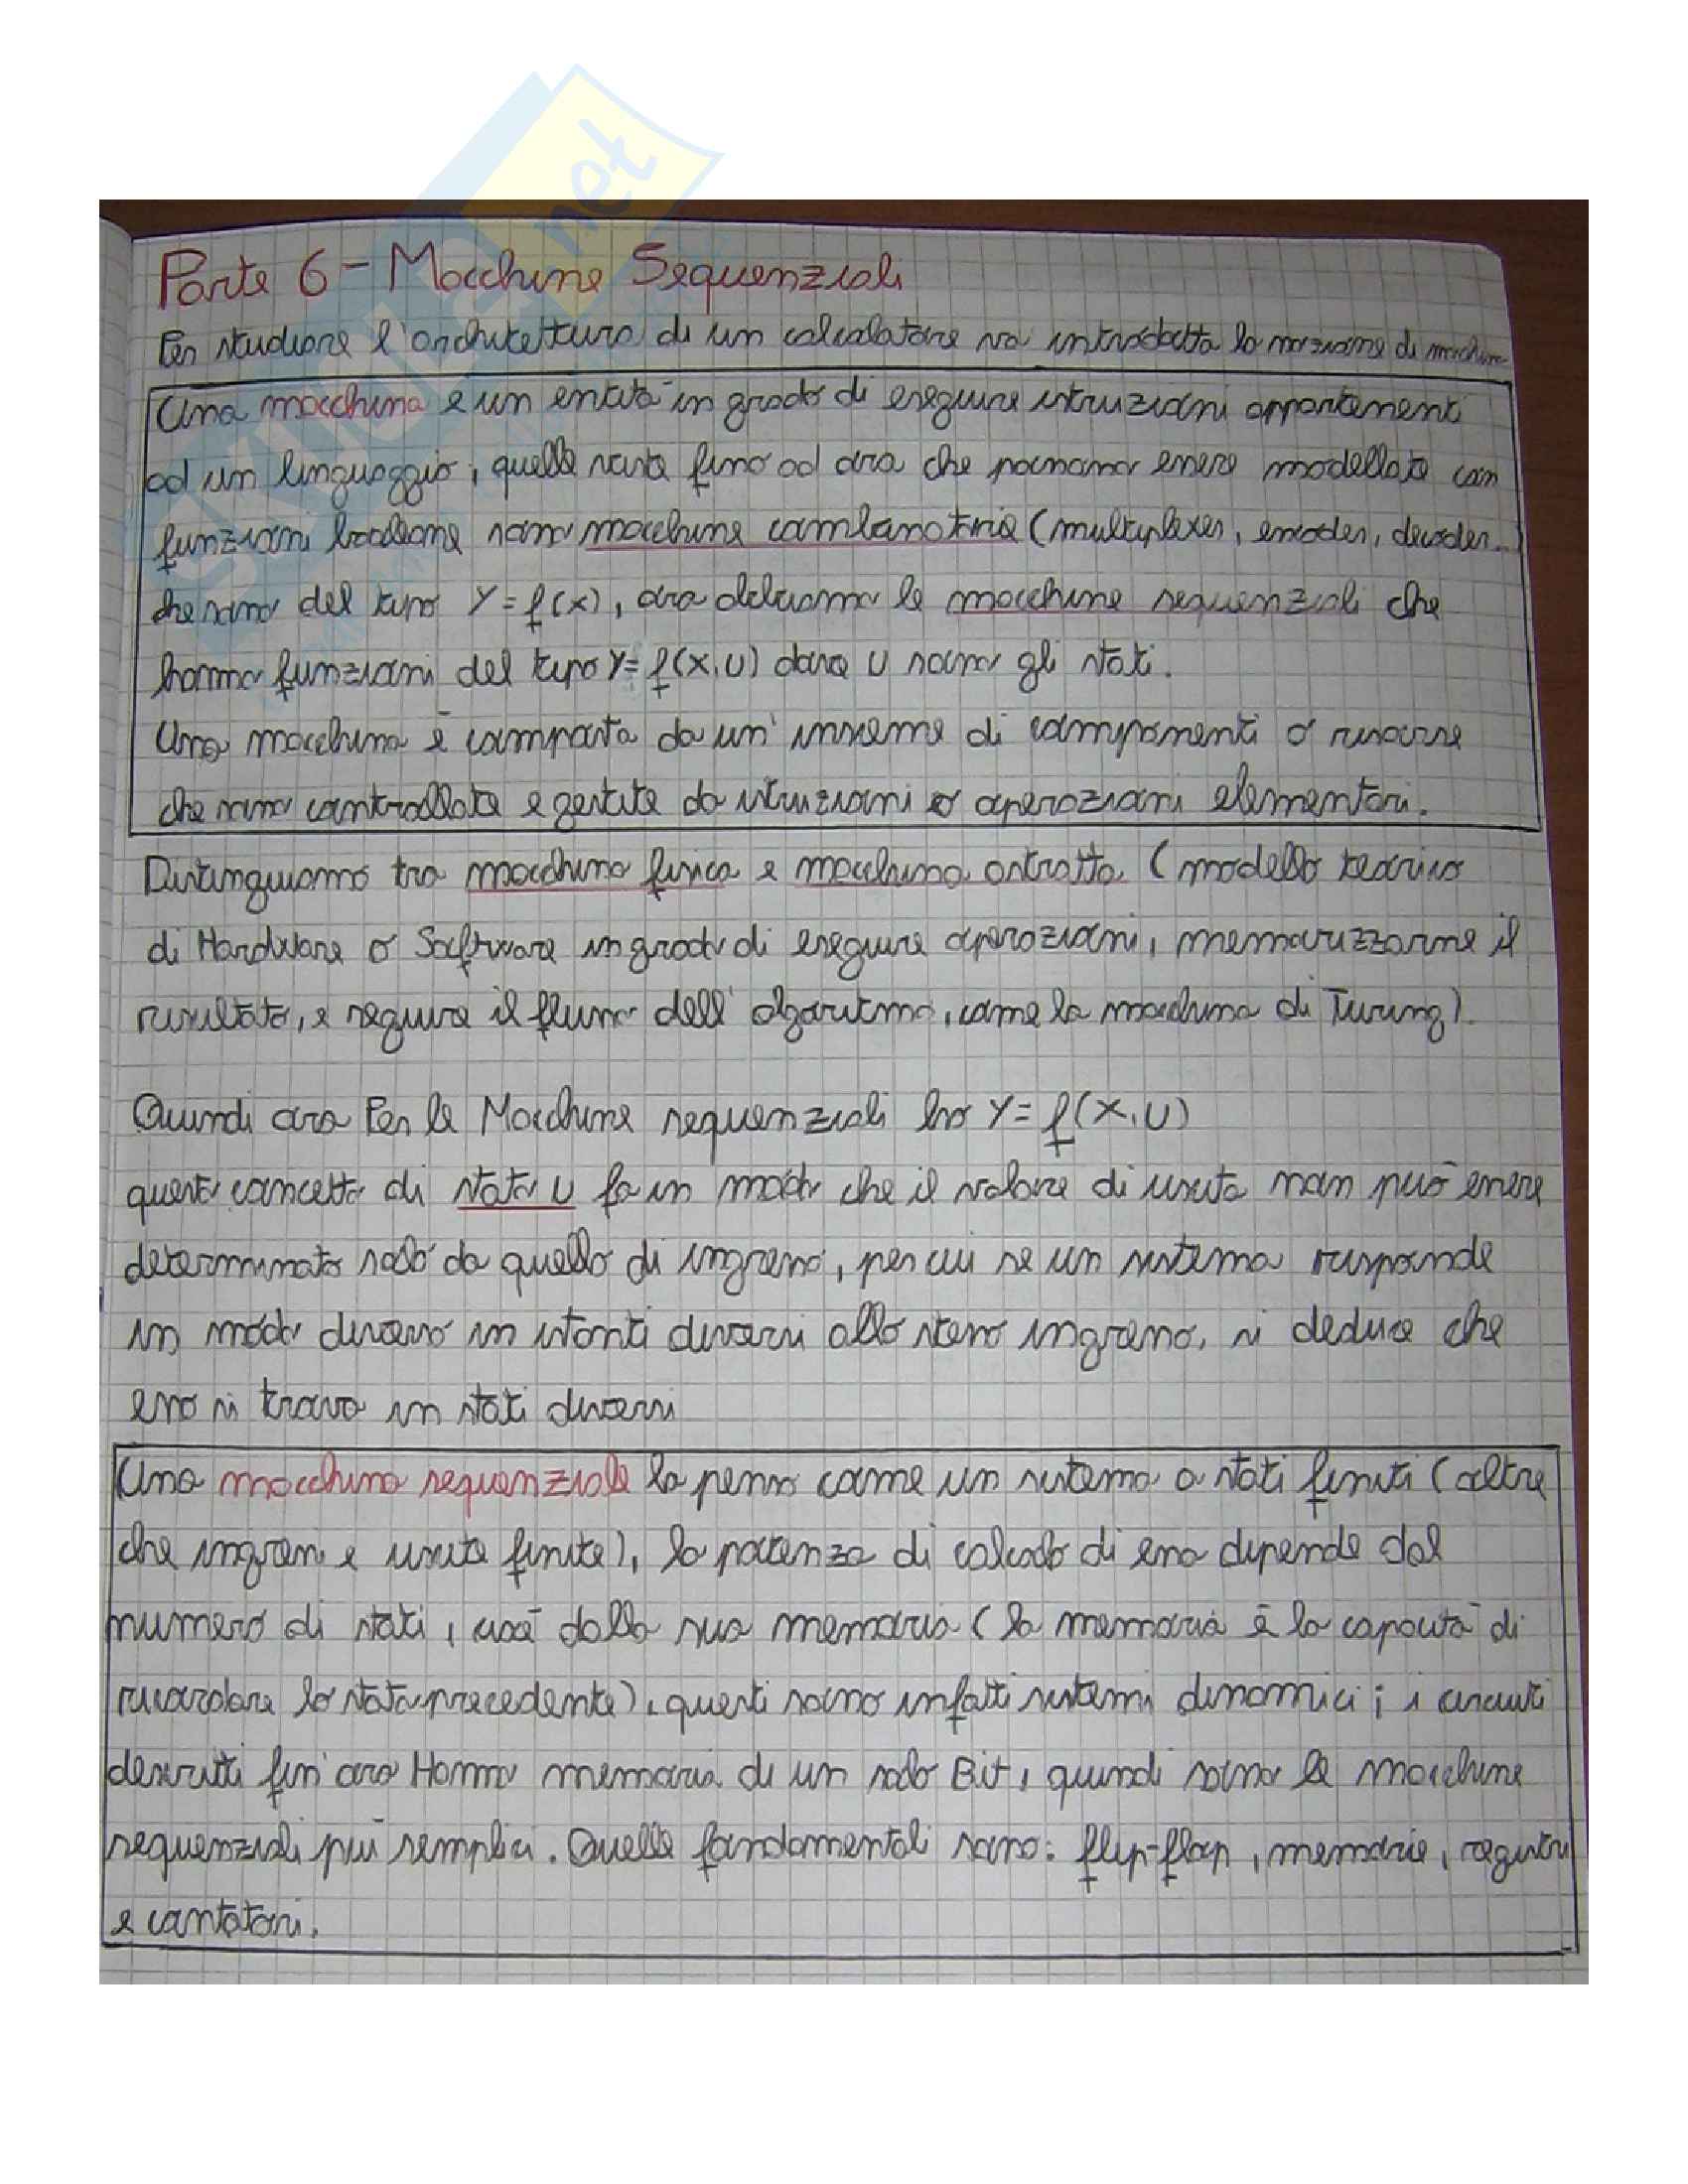 Parte 6 - Macchine Sequenziali
Per studiare l'architettura di un calcolatore va introdotta la nozione di macchina
Una macchina è un entità in grado di eseguire istruzioni appartenenti
ad un linguaggio; quelle viste fino ad ora che possiamo essere modellate con
funzioni booleane sono macchine combinatorie (multiplexer, encoder, decoder...)
che sono del tipo Y = f(x), ora abbiamo le macchine sequenziali che
hanno funzioni del tipo Y = f(X,U) dove U sono gli stati.
Una macchina è composta da un'insieme di componenti o risorse
che sono controllate e gestite da istruzioni o operazioni elementari.
Distinguiamo tra macchina fisica e macchina astratta (modello teorico
di Hardware o Software in grado di eseguire operazioni, memorizzarne il
risultato, e seguire il flusso dell'algoritmo, come la macchina di Turing).
Quindi ora Per le Macchine sequenziali ho Y = f(X,U)
questo concetto di stato U fa in modo che il valore di uscita non può essere
determinato solo da quello di ingresso, per cui se un sistema risponde
in modo diverso in istanti diversi allo stesso ingresso, si deduce che
esso si trova in stati diversi
Una macchina sequenziale la penso come un sistema a stati finiti (oltre
che ingressi e uscite finite), la potenza di calcolo di essa dipende dal
numero di stati, cioè dalla sua memoria (la memoria è la capacità di
ricordare lo stato precedente), questi sono infatti sistemi dinamici; i circuiti
descritti fin'ora Hanno memoria di un solo Bit, quindi sono le macchine
sequenziali più semplici. Quelle fondamentali sono: flip-flop, memorie, registri
e contatori.
SKUOLA.net